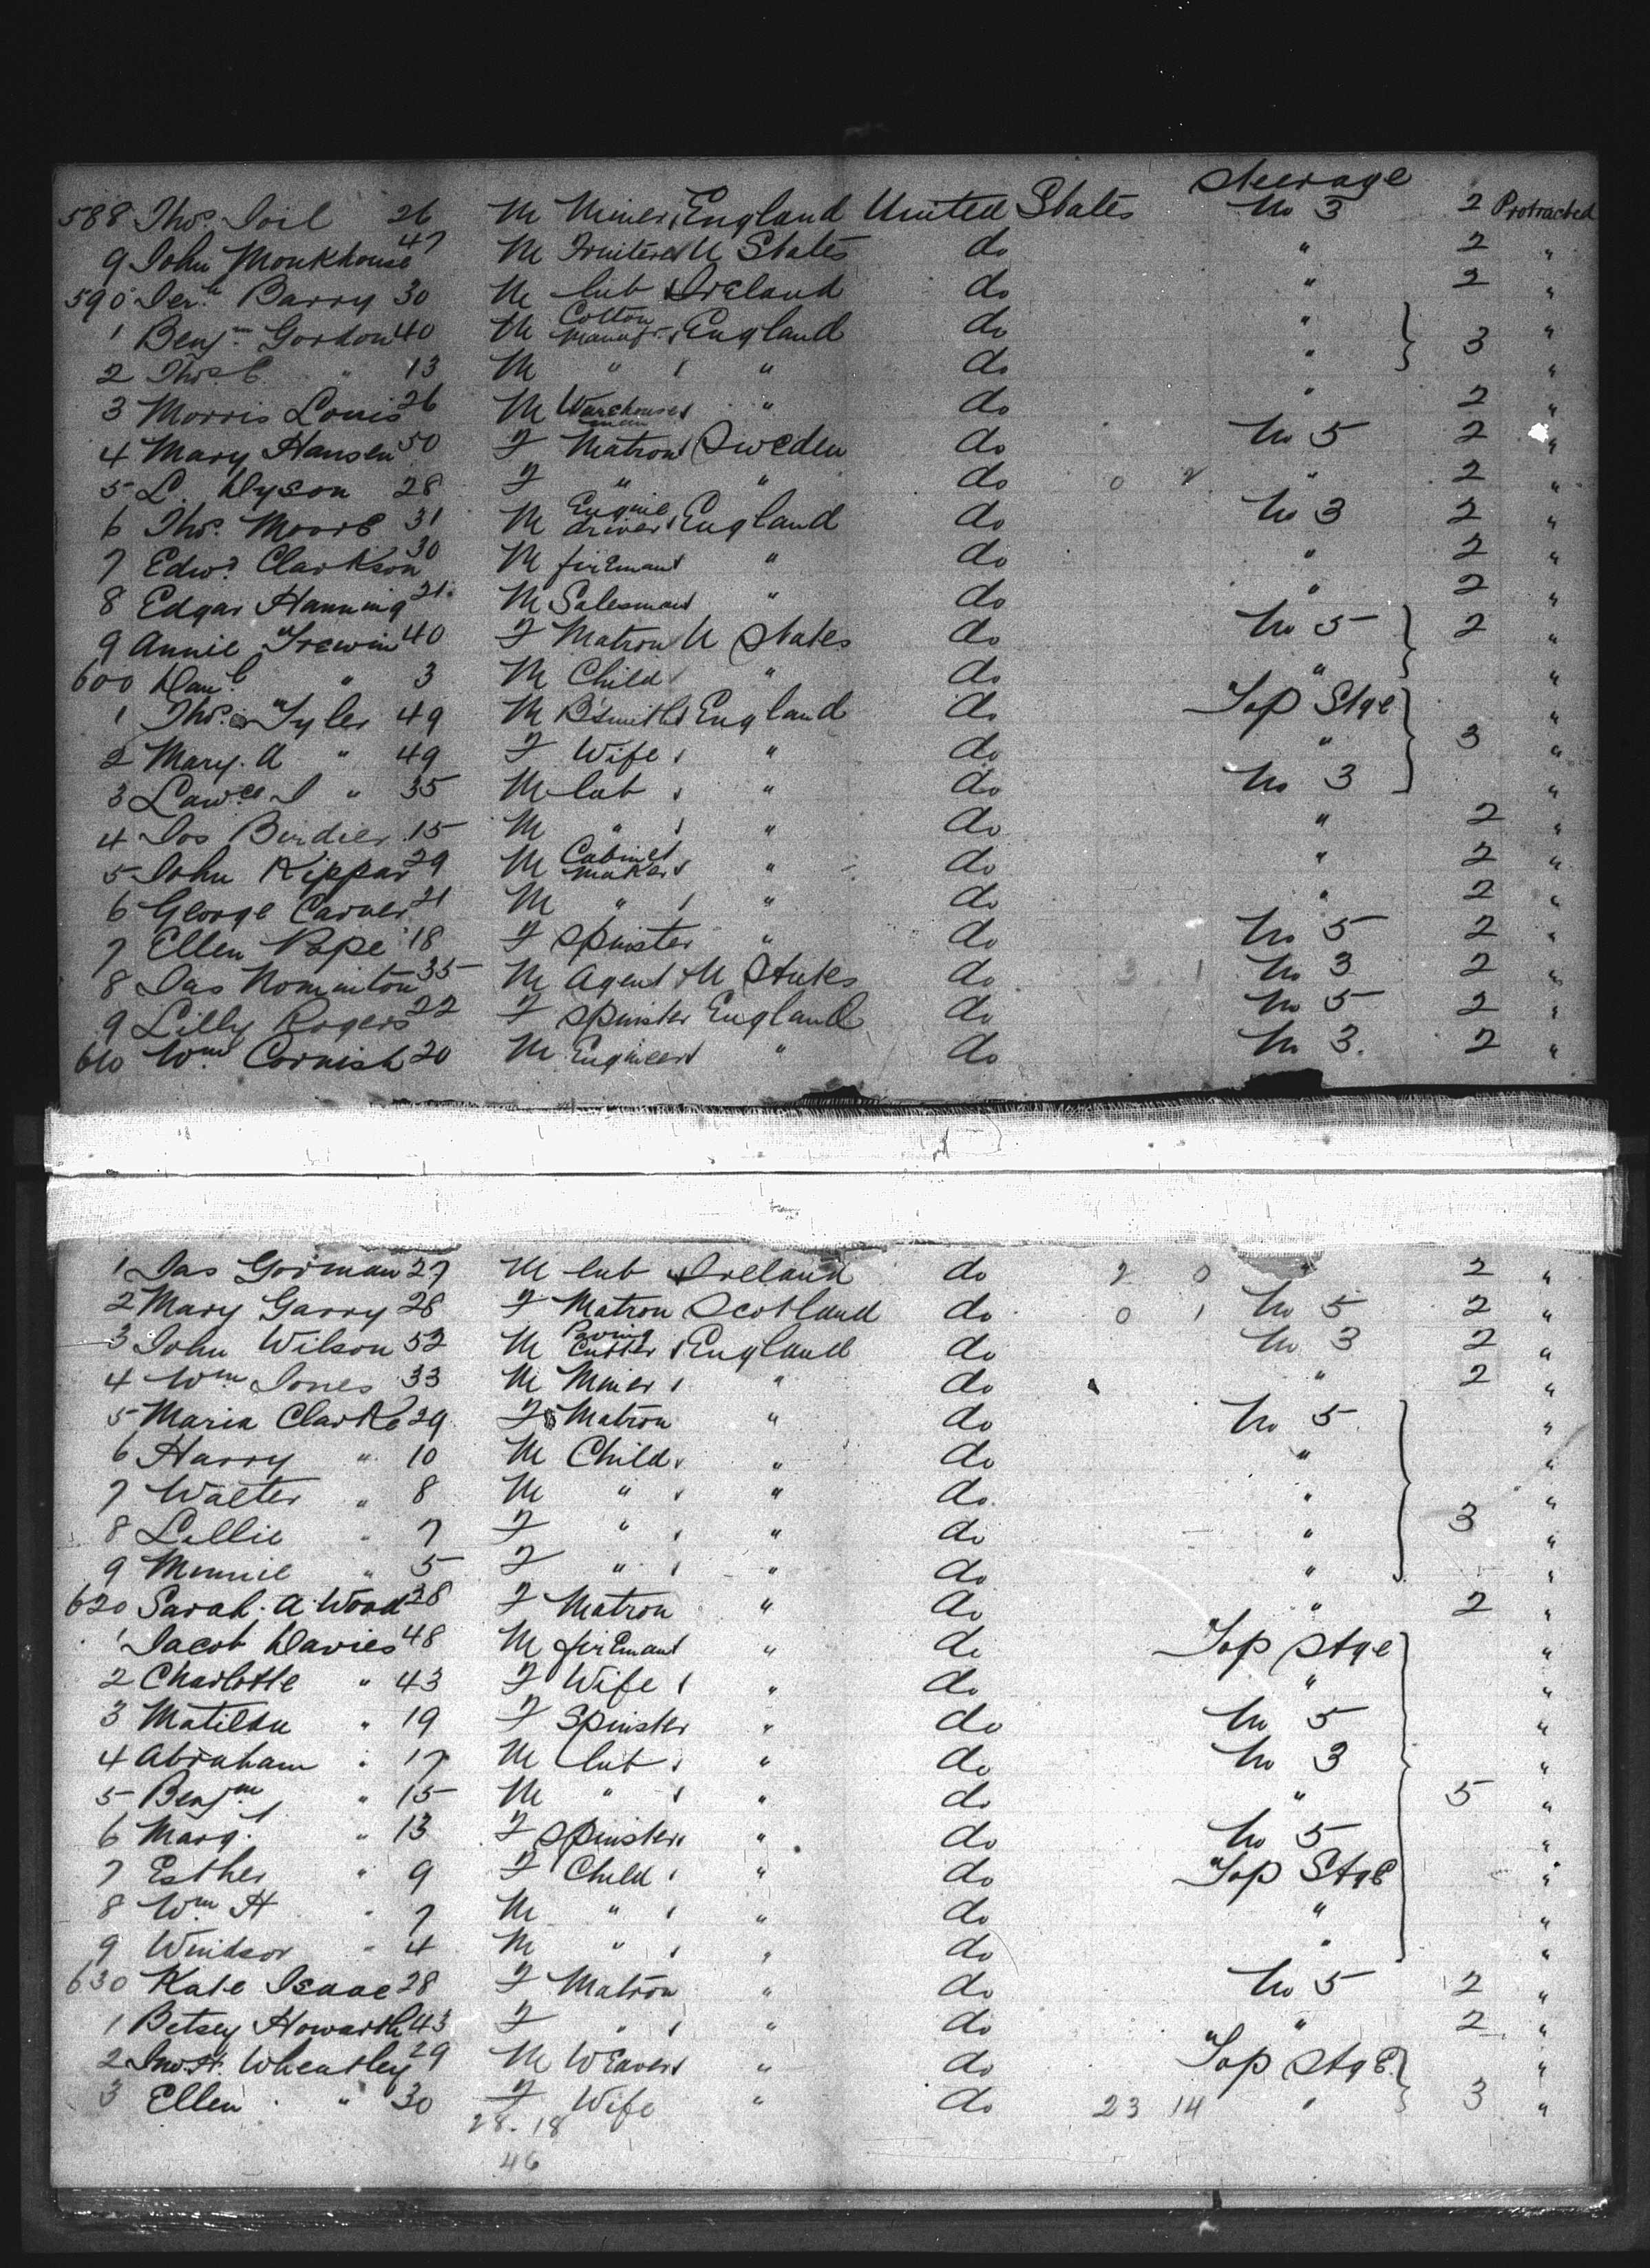 Steerage
588 Thos. Soil 26 M Miner England United States No 3 2 Protracted
9 John Monkhouse 47 M Fruiterer U States do " 2 "
590 Jerh Barry 30 M Lab Ireland do " 2 "
1 Benjn Gordon 40 M Cotton Manufr England do " 3 "
2 Thos. C. " 13 M " " do " "
3 Morris Louis 26 M Warehouseman " do " 2 "
4 Mary Hansen 50 F Matron Sweden do No 5 2 "
5 L. Dyson 28 F " " do 0 2 " 2 "
6 Thos. Moore 31 M Engine driver England do No 3 2 "
7 Edwd Clarkson 30 M fireman " do " 2 "
8 Edgar Hanning 21 M Salesman " do " 2 "
9 Annie Trewin 40 F Matron U States do No 5 2 "
600 Danl " 3 M Child " do " "
1 Thos. Tyler 49 M B'smith England do Top Stge "
2 Mary. A " 49 F Wife " do " 3 "
3 Lawce J " 35 M Lab " do No 3 "
4 Jos Burdier 15 M " " do " 2 "
5 John Kippar 29 M Cabinet maker " do " 2 "
6 George Carver 21 M " " do " 2 "
7 Ellen Pope 18 F Spinster " do No 5 2 "
8 Jas Nominton 35 M Agent U States do 3 1 No 3 2 "
9 Lilly Rogers 22 F Spinster England do No 5 2 "
610 Wm Cornish 20 M Engineer " do No 3. 2 "
1 Jas Gorman 27 M Lab Ireland do 2 0 " 2 "
2 Mary Garry 28 F Matron Scotland do 0 1 No 5 2 "
3 John Wilson 52 M Paving Cutter England do No 3 2 "
4 Wm Jones 33 M Miner " do " 2 "
5 Maria Clarke 29 F Matron " do No 5 "
6 Harry " 10 M Child " do " "
7 Walter " 8 M " " do " "
8 Lillie " 7 F " " do " 3 "
9 Minnie " 5 F " " do " "
620 Sarah. A. Wood 28 F Matron " do " 2 "
1 Jacob Davies 48 M fireman " do Top Stge "
2 Charlotte " 43 F Wife " do " "
3 Matilda " 19 F Spinster " do No 5 "
4 Abraham " 17 M Lab " do No 3 "
5 Benjm " 15 M " " do " 5 "
6 Margt " 13 F Spinster " do No 5 "
7 Esther " 9 F Child " do Top Stge "
8 Wm H " 7 M " " do " "
9 Windsor " 4 M " " do " "
630 Kate Isaac 28 F Matron " do No 5 2 "
1 Betsey Howarth 43 F " " do " 2 "
2 Jno. H. Wheatley 29 M Weaver " do Top Stge. "
3 Ellen " 30 F Wife " do 23 14 " 3 "
28-18
46